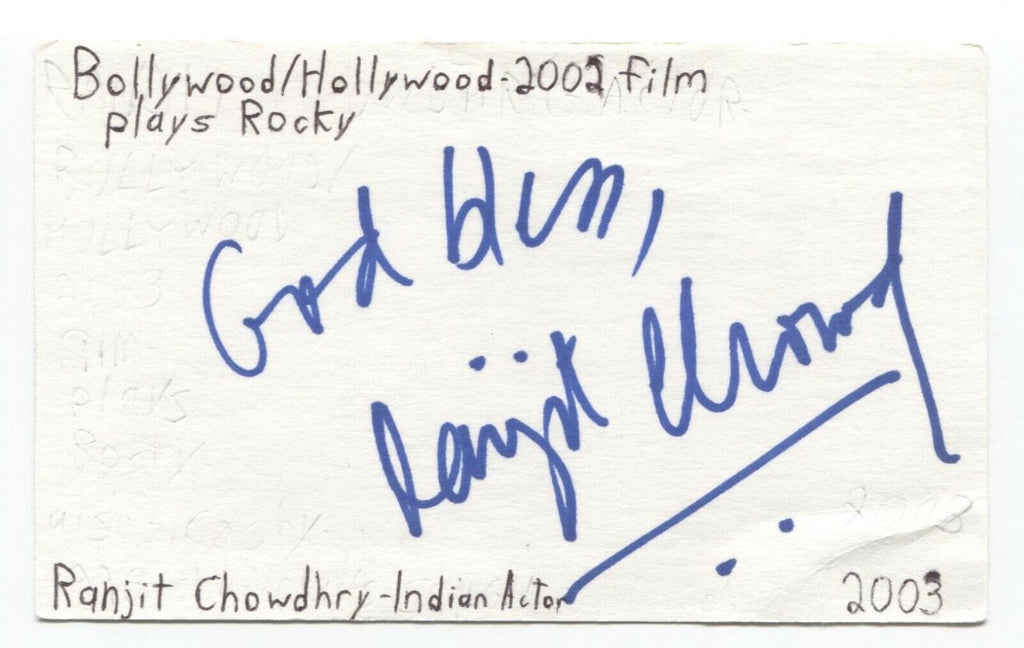 Bollywood/Hollywood-2002 film
plays Rocky
God bless,
Ranjit Chowd
Ranjit Chowdhry-Indian Actor
2003